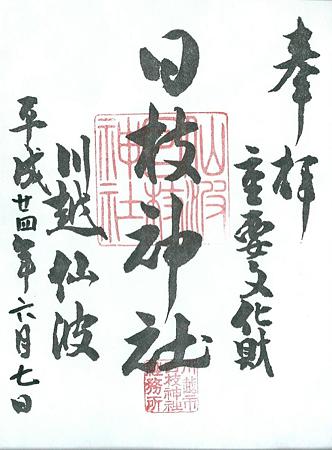 奉拝
重要文化財
日枝神社
仙波
日枝
神社
川越市
日枝神社
社務所
川越仙波
平成廿四年六月七日